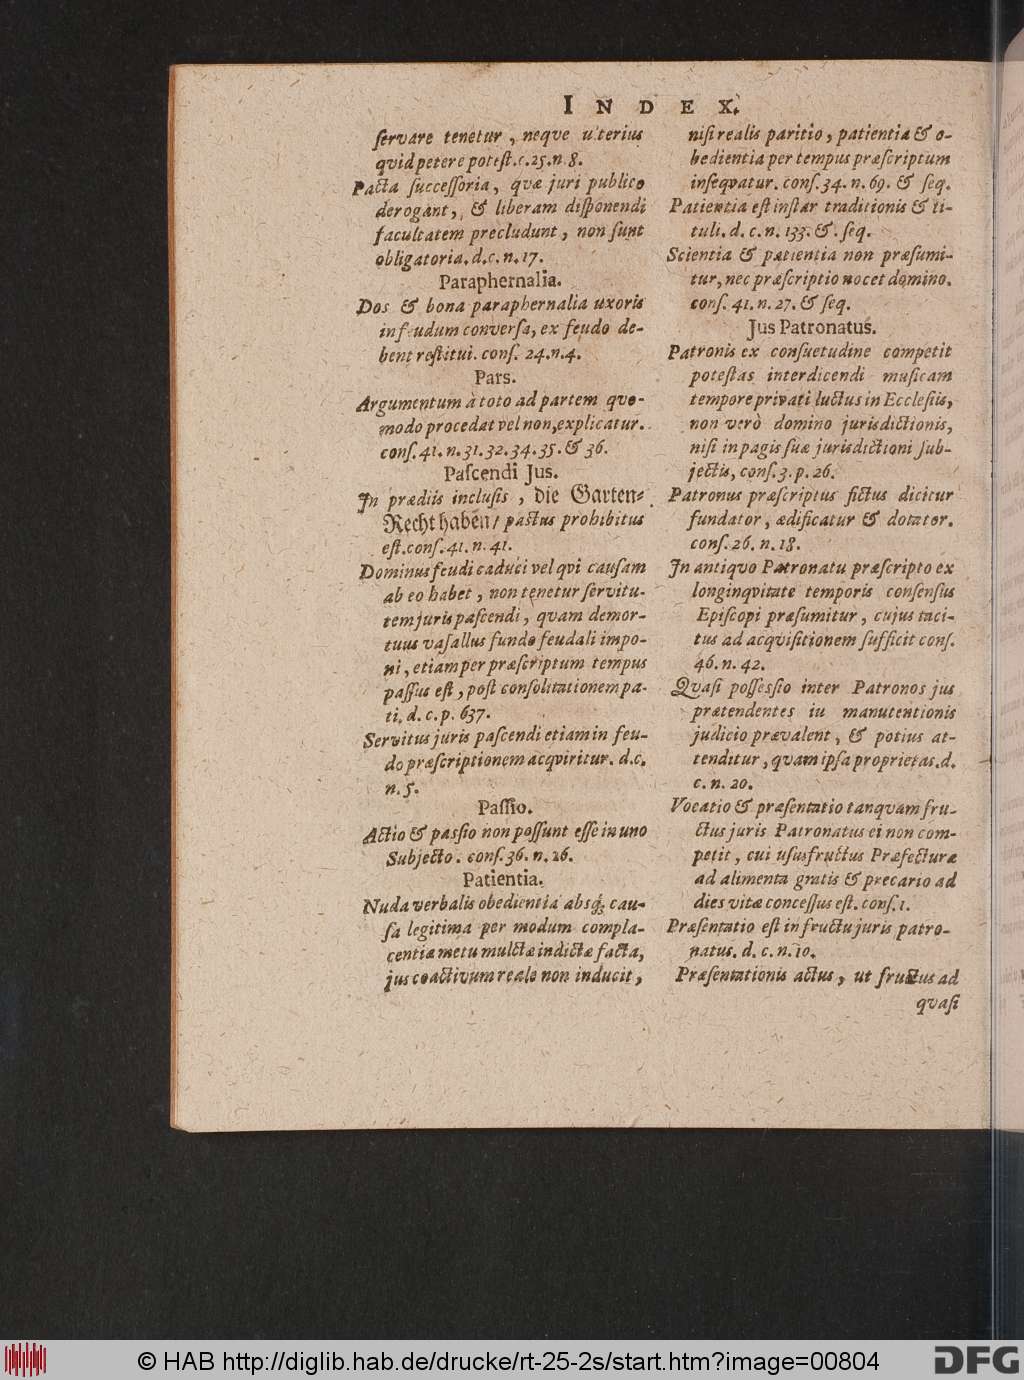 INDEX.
ſervare tenetur, neque ulterius
quid petere poteſt. c. 25. n. 8.
Pacta ſucceſſoria, quæ juri publico
derogant, & liberam diſponendi
facultatem precludunt, non ſunt
obligatoria. d. c. n. 17.
Paraphernalia.
Dos & bona paraphernalia uxoris
in feudum converſa, ex feudo de-
bent reſtitui. conſ. 24. n. 4.
Pars.
Argumentum à toto ad partem quo-
modo procedat vel non, explicatur.
conſ. 41. n. 31. 32. 34. 35. & 36.
Paſcendi Jus.
In prædiis incluſis, die Garten-
Recht haben / paſtus prohibitus
eſt. conſ. 41. n. 41.
Dominus feudi caduci vel qvi cauſam
ab eo habet, non tenetur ſervitu-
tem juris paſcendi, quam demor-
tuus vaſallus fundo feudali impo-
ni, etiam per præſcriptum tempus
paſſus eſt, poſt conſolitationem pa-
ti. d. c. p. 637.
Servitus juris paſcendi etiam in feu-
do præſcriptionem acqviritur. d. c.
n. 5.
Paſſio.
Actio & paſsio non poſſunt eſſe in uno
Subjecto. conſ. 36. n. 26.
Patientia.
Nuda verbalis obedientia absq; cau-
ſa legitima per modum compla-
centiæ metu mulctæ indictæ facta,
jus coactivum reale non inducit,
niſi realis paritio, patientia & o-
bedientia per tempus præſcriptum
inſeqvatur. conſ. 34. n. 69. & ſeq.
Patientia eſt inſtar traditionis & ti-
tuli. d. c. n. 133. &. ſeq.
Scientia & patientia non præſumi-
tur, nec præſcriptio nocet domino.
conſ. 41. n. 27. & ſeq.
Jus Patronatus.
Patronis ex conſuetudine competit
poteſtas interdicendi muſicam
tempore privati luctus in Eccleſiis,
non verò domino jurisdictionis,
niſi in pagis ſuæ jurisdictioni ſub-
jectis, conſ. 3. p. 26.
Patronus præſcriptus fictus dicitur
fundator, ædificatur & dotator.
conſ. 26. n. 18.
In antiqvo Patronatu præſcripto ex
longinqvitate temporis conſenſus
Epiſcopi præſumitur, cujus taci-
tus ad acqviſitionem ſufficit conſ.
46. n. 42.
Quaſi poſſeſsio inter Patronos jus
prætendentes iu manutentionis
judicio prævalent, & potius at-
tenditur, quam ipſa proprietas. d.
c. n. 20.
Vocatio & præſentatio tanquam fru-
ctus juris Patronatus ei non com-
petit, cui uſusfructus Præfecturæ
ad alimenta gratis & precario ad
dies vitæ conceſſus eſt. conſ. 1.
Præſentatio eſt in fructu juris patro-
natus. d. c. n. 10.
Præſentationis actus, ut fructus ad
qvaſi
© HAB http://diglib.hab.de/drucke/rt-25-2s/start.htm?image=00804
DFG